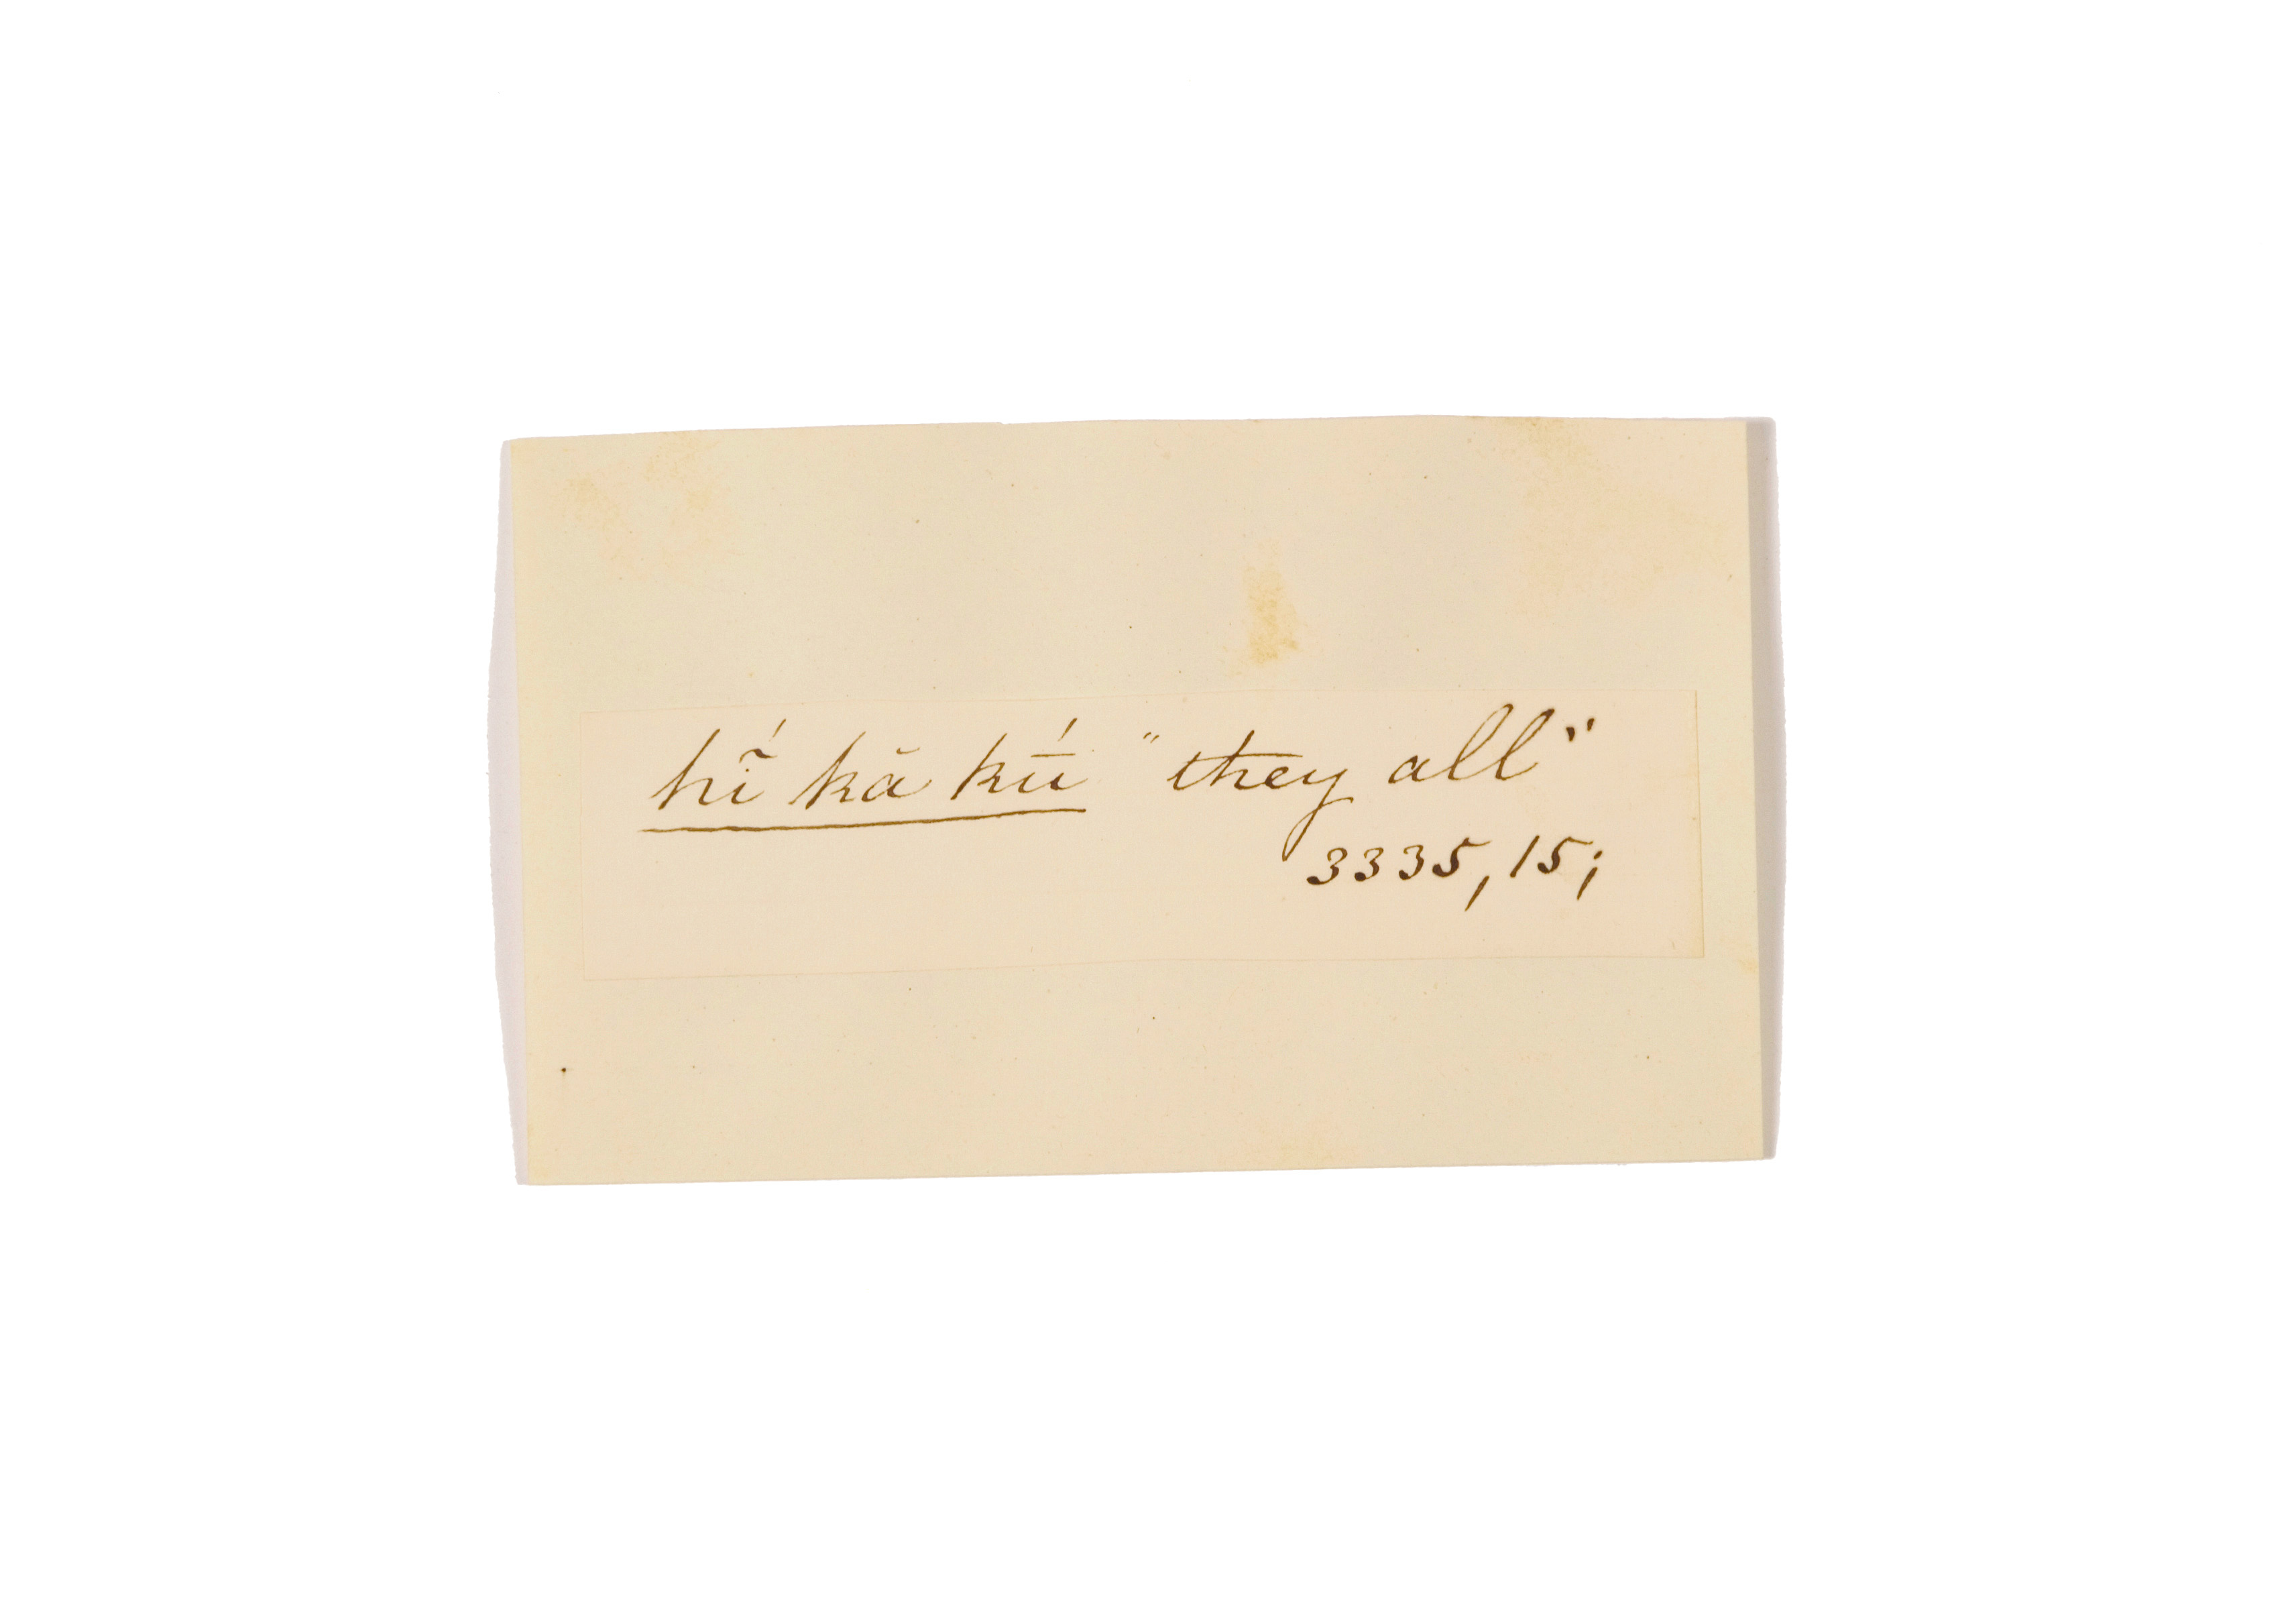 hĩ́ kă kū́ "they all"
3335, 15;